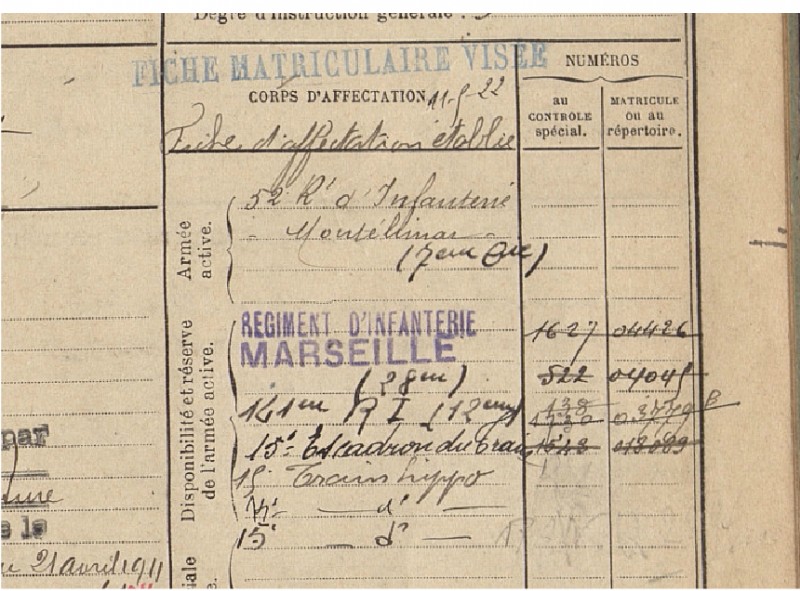 Degré d'instruction générale : 3
FICHE MATRICULAIRE VISÉE
NUMÉROS
CORPS D'AFFECTATION 11-5-22
au CONTROLE spécial.
MATRICULE ou au répertoire.
Fiche d'affectation établie
Armée active.
52 Rt d'Infanterie
Montélimar
(7eme Cie)
Disponibilité et réserve de l'armée active.
REGIMENT D'INFANTERIE 1627 04426
MARSEILLE
(28em) 522 04045
141em RI (12em) 03779 B
15e Escadron du Train 1543 018089
15 Train hippo
d°
15e d°
21 avril 1911